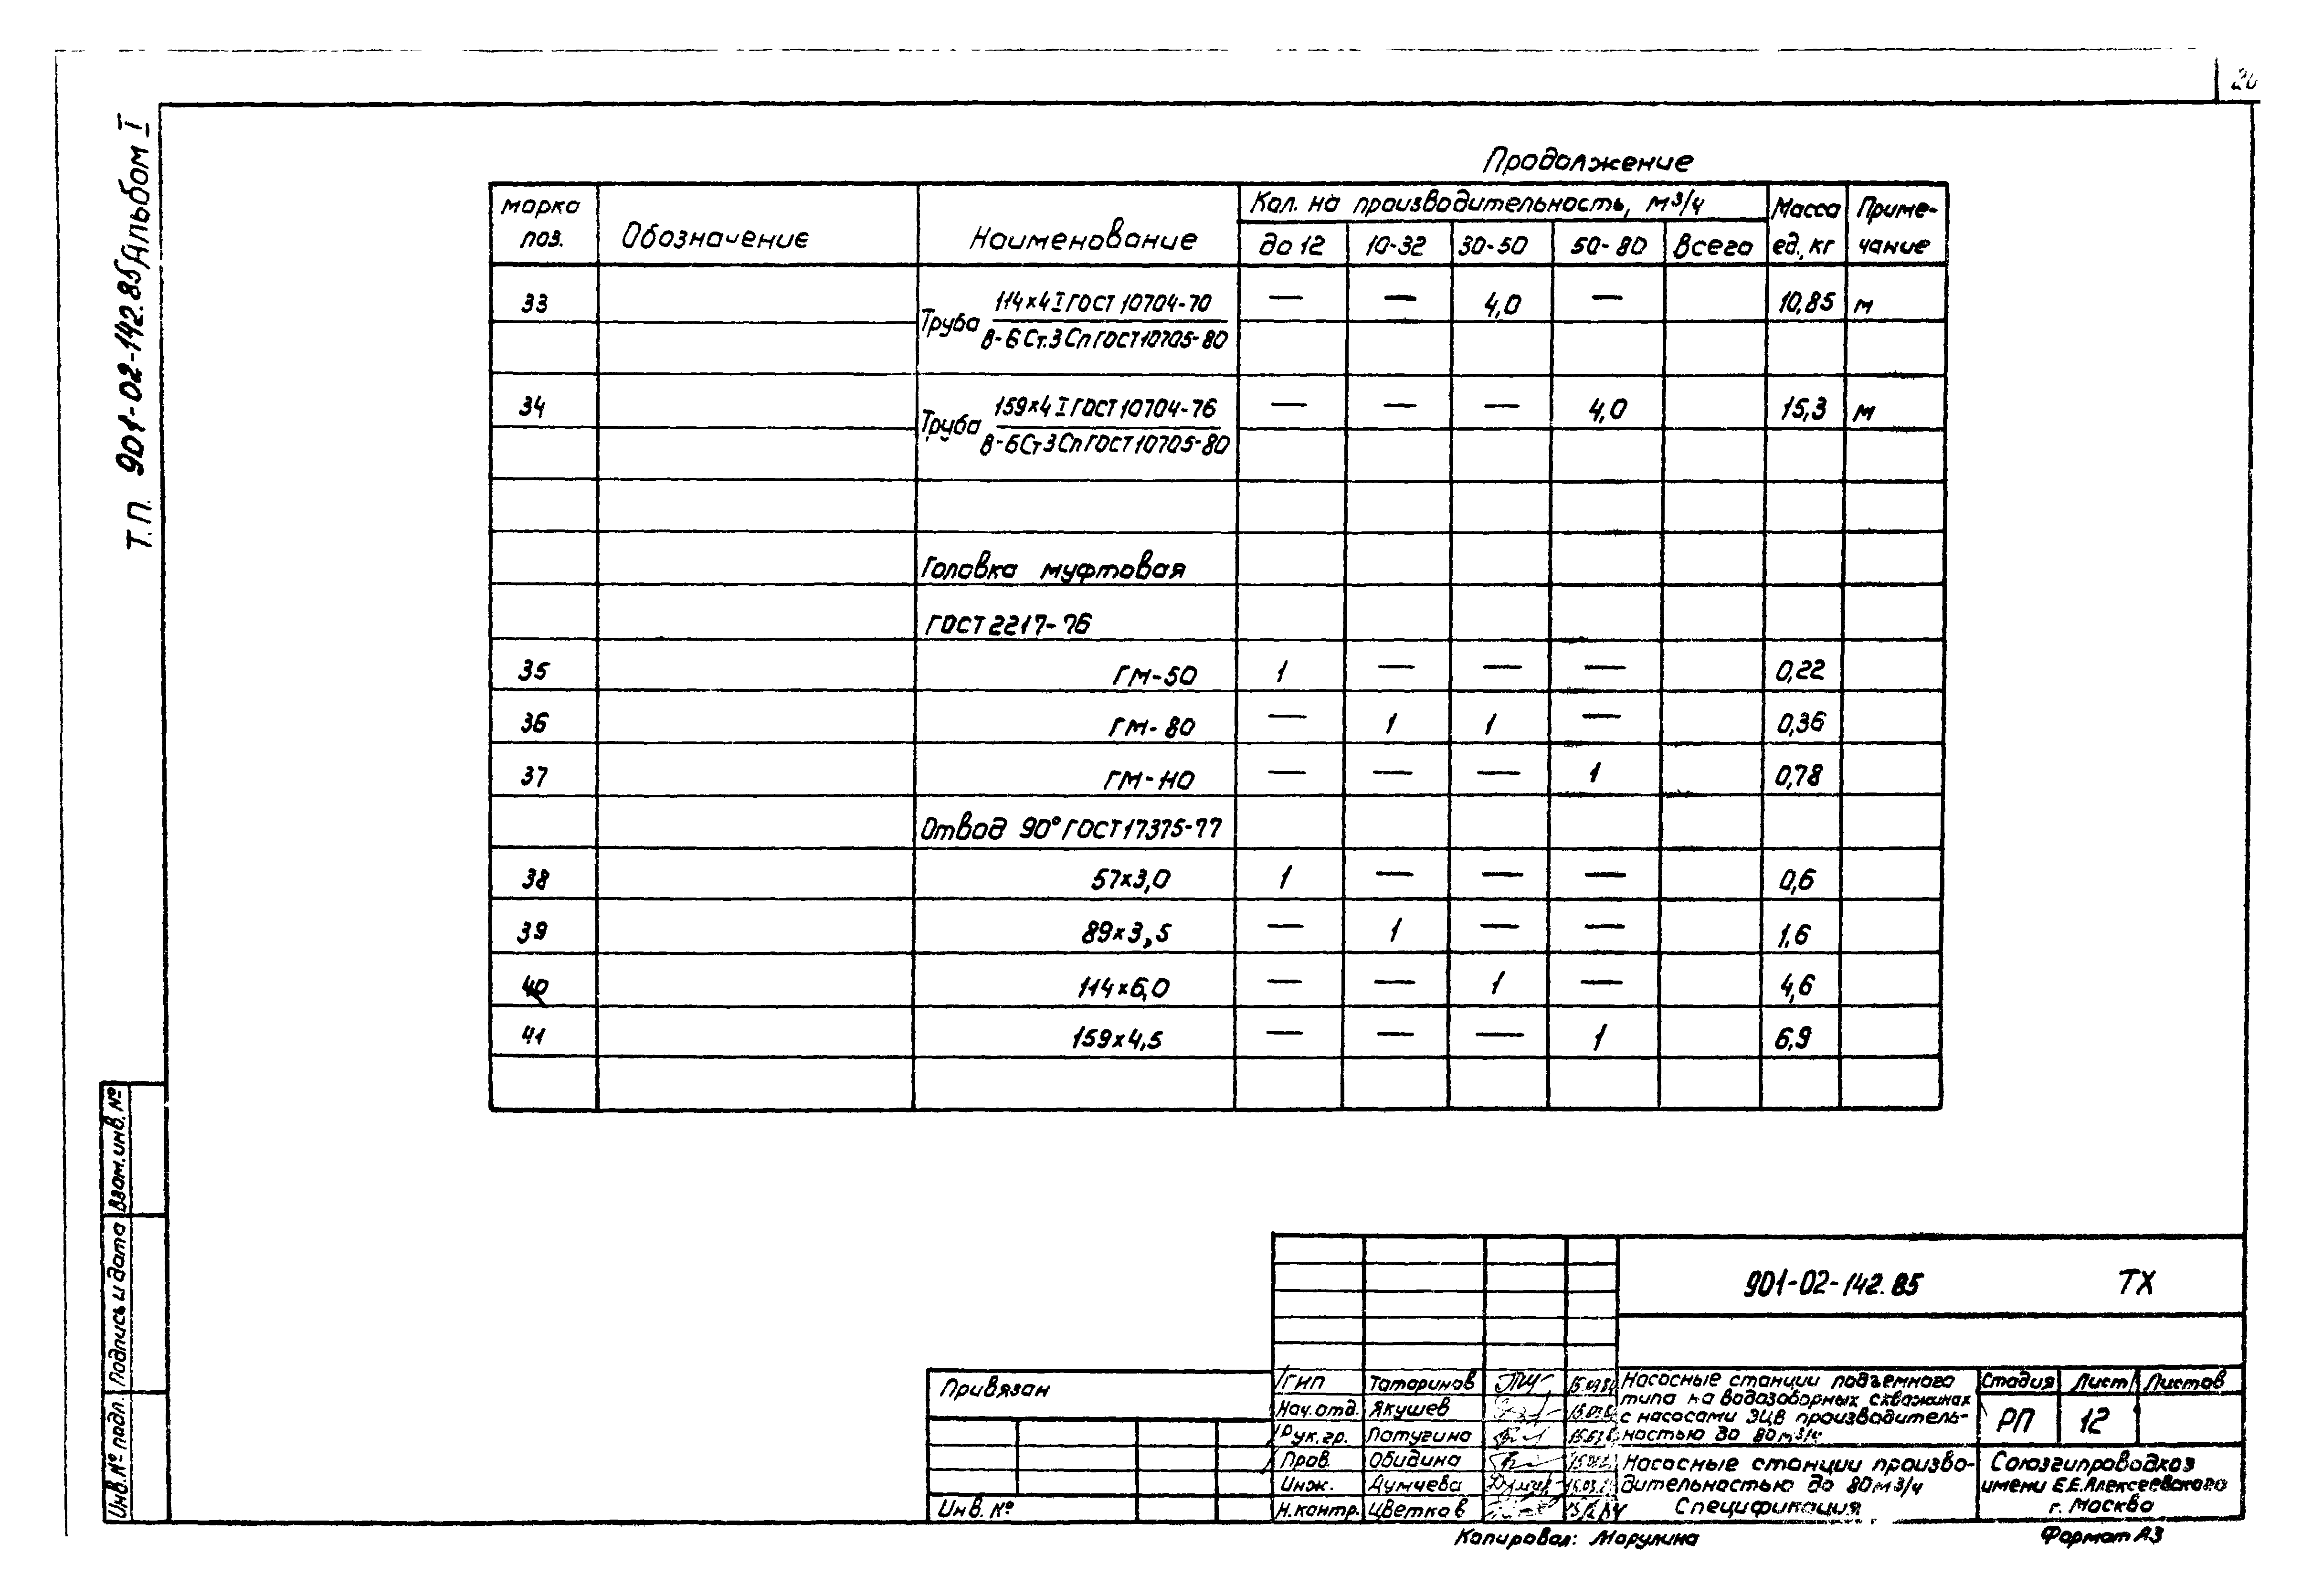 20
Т.П. 901-02-142.85 Альбом I
Продолжение
Марка поз. Обозначение Наименование Кол. на производительность, м³/ч Масса ед., кг Примечание
до 12 10-32 30-50 50-80 Всего
33 Труба 114×4 I ГОСТ 10704-70 — — 4,0 — 10,85 м
В-6 Ст.3 Сп ГОСТ 10705-80
34 Труба 159×4 I ГОСТ 10704-76 — — — 4,0 15,3 м
В-6 Ст3 Сп ГОСТ 10705-80
Головка муфтовая
ГОСТ 2217-76
35 ГМ-50 1 — — — 0,22
36 ГМ-80 — 1 1 — 0,36
37 ГМ-110 — — — 1 0,78
Отвод 90° ГОСТ 17375-77
38 57×3,0 1 — — — 0,6
39 89×3,5 — 1 — — 1,6
40 114×6,0 — — 1 — 4,6
41 159×4,5 — — — 1 6,9
Взам. инв. №
Подпись и дата
Инв. № подл.
901-02-142.85 ТХ
Привязан
Инв. №
ГИП Татаринов
Нач. отд. Якушев
Рук. гр. Потугина
Пров. Обидина
Инж. Думчева
Н. контр. Цветков
Насосные станции подземного
типа на водозаборных скважинах
с насосами ЭЦВ производитель-
ностью до 80 м³/ч
Стадия Лист Листов
РП 12
Насосные станции произво-
дительностью до 80 м³/ч
Спецификация
Союзгипроводхоз
имени Е.Е. Алексеевского
г. Москва
Копировал: Марулина
Формат А3